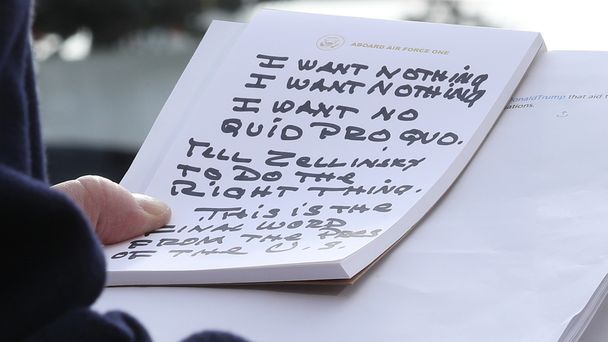 ABOARD AIR FORCE ONE
I WANT NOTHING
I WANT NOTHING
I WANT NO
QUID PRO QUO.
TELL ZELLINSKY
TO DO THE
RIGHT THING.
THIS IS THE
FINAL WORD
FROM THE PRES
OF THE U.S.
onaldTrump that aid t
ations.